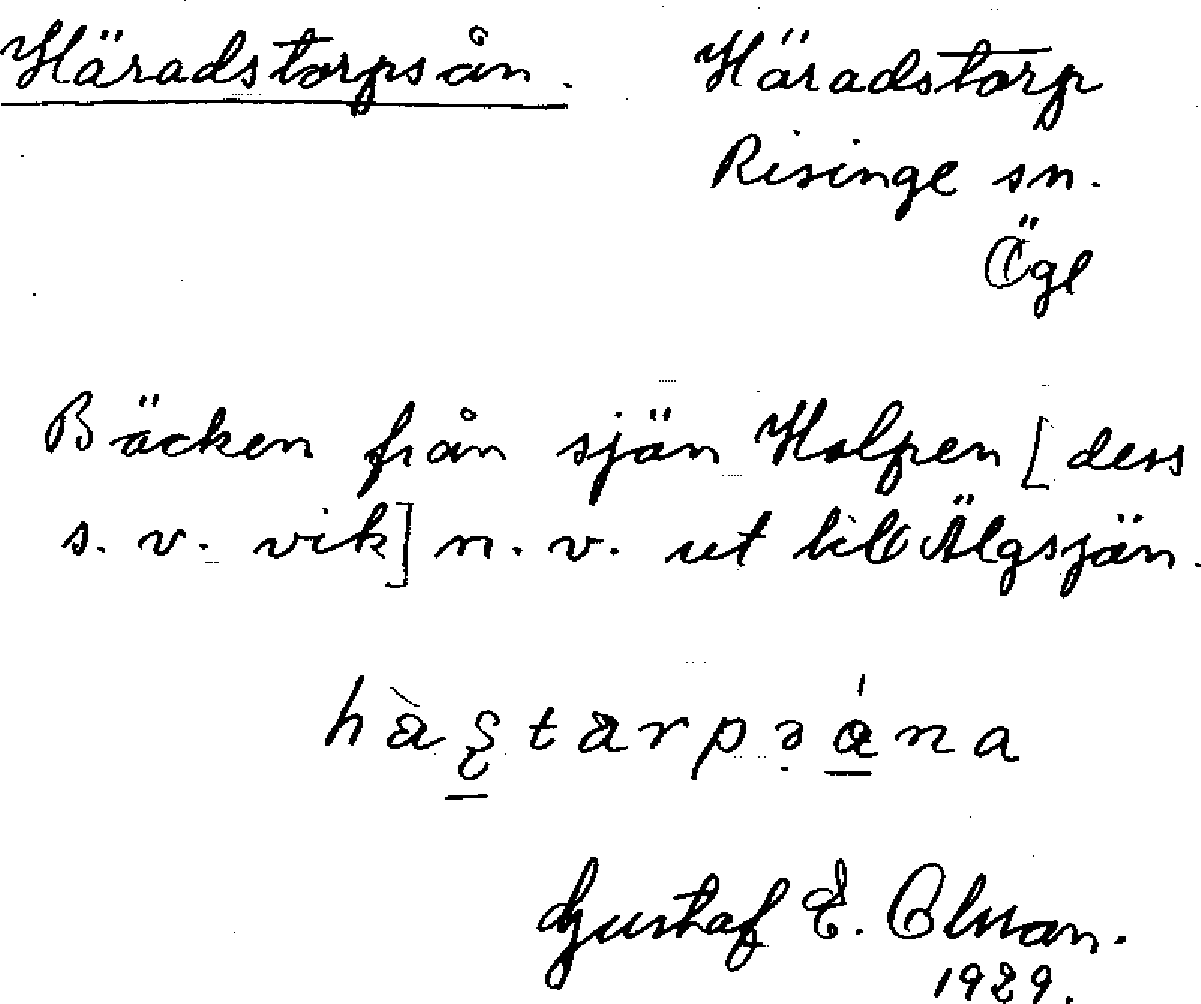 Häradstorpsån. Häradstorp
Risinge sn.
Ögl
Bäcken från sjön Holpen [dess
s. v. vik] n. v. ut till Älgsjön.
Gustaf E. Olsson.
1929.